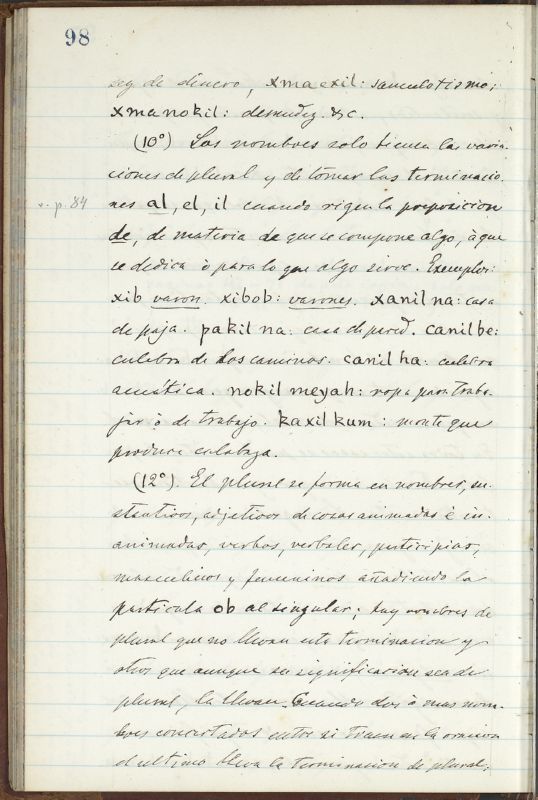 98
sez de dinero, xma exil: sanculotismo;
xma nokil: desnudez &c.
(10°) Los nombres solo tienen las varia-
ciones de plural y de tomar las terminacio-
v. p. 84
nes al, el, il cuando rigen la preposicion
de, de materia de que se compone algo, à que
se dedica ò para lo que algo sirve. Exemplos:
xib varon. xibob: varones. xanil na: casa
de paja. pakil na: casa de pared. canil be:
culebra de los caminos. canil ha: culebra
acuática. nokil meyah: ropa para traba-
jar ò de trabajo. kaxil kum: monte que
produce calabaza.
(12°). El plural se forma en nombres, su-
stantivos, adjetivos de cosas animadas è in-
animadas, verbos, verbales, participios,
masculinos y femeninos añadiendo la
particula ob al singular; hay nombres de
plural que no llevan esta terminacion y
otros que aunque su significacion sea de
plural, la llevan. Cuando dos ò mas nom-
bres concertados entre si traen en la oracion
el ultimo lleva la terminacion de plural;